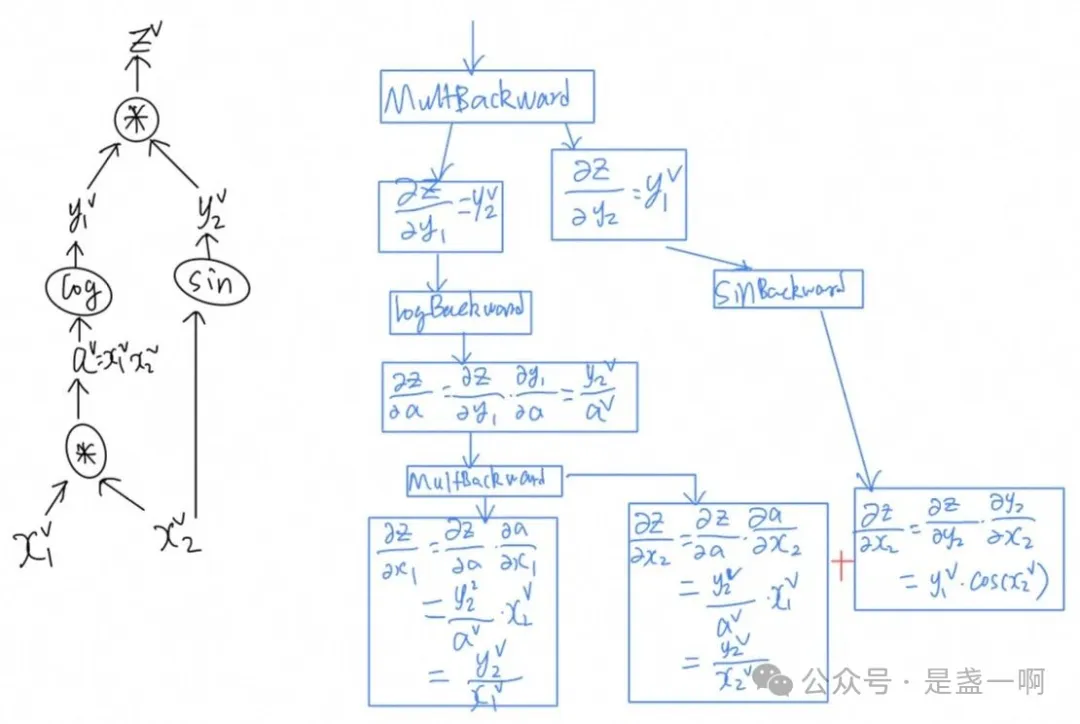 z^v
*
y_1^v
y_2^v
log
sin
a^v=x_1^v x_2^v
*
x_1^v
x_2^v
MultBackward
∂z/∂y_1=y_2^v
∂z/∂y_2=y_1^v
logBackward
SinBackward
∂z/∂a=∂z/∂y_1·∂y_1/∂a=y_2^v/a^v
MultBackward
∂z/∂x_1=∂z/∂a·∂a/∂x_1
=y_2^2/a^v·x_2^v
=y_2^v/x_1^v
∂z/∂x_2=∂z/∂a·∂a/∂x_2
=y_2^v/a^v·x_1^v
=y_2^v/x_2^v
+
∂z/∂x_2=∂z/∂y_2·∂y_2/∂x_2
=y_1^v·cos(x_2^v)
公众号·是盏一啊